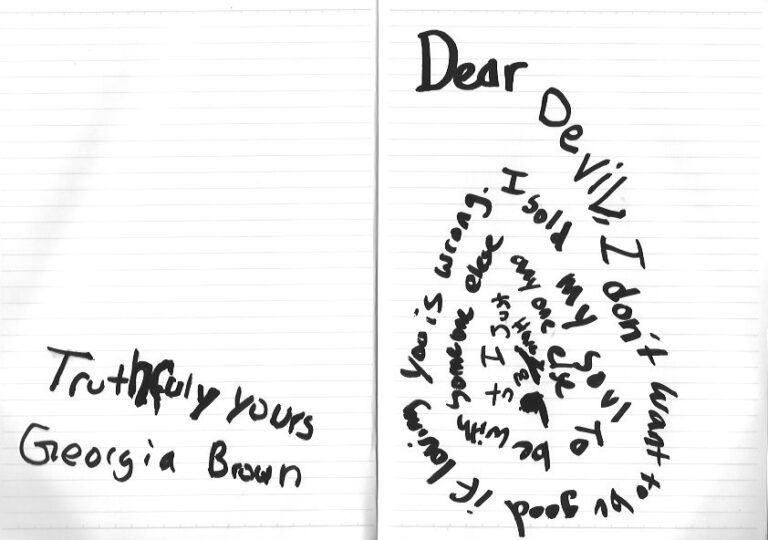 Dear
Devil, I don't want to be good if loving you is wrong.
I sold my soul To be with someone else
any one else
I Just
Truthfuly yours
Georgia Brown